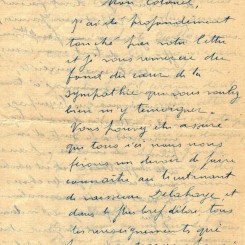 Mon Colonel,
J'ai été profondément
touché par votre lettre
et je vous remercie du
fond du cœur de la
sympathie que vous voulez
bien m'y témoigner.
Vous pouvez être assuré
que tous ici nous nous
ferons un devoir de faire
connaître au lieutenant
de vaisseau Delahaye et
dans le plus bref délai tous
les renseignements que